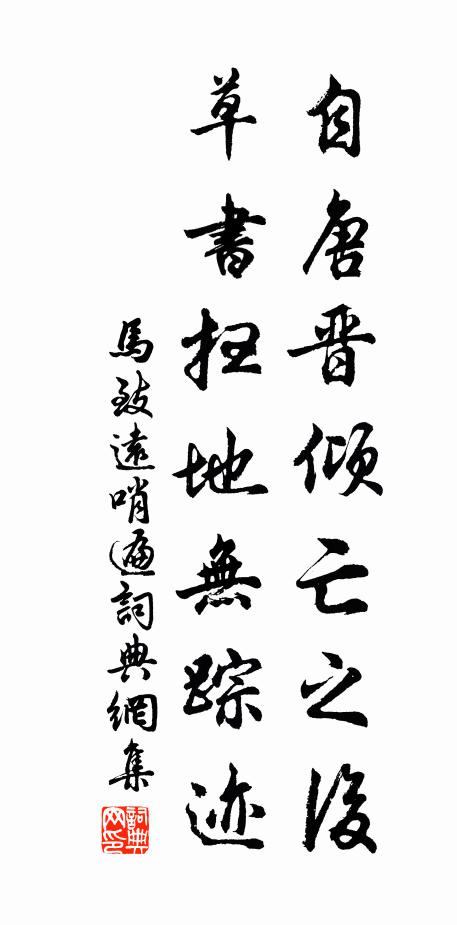 自唐晋傾亡之後
草書扫地無踪迹
馬致遠哨遍詞典網集
詞典
网印